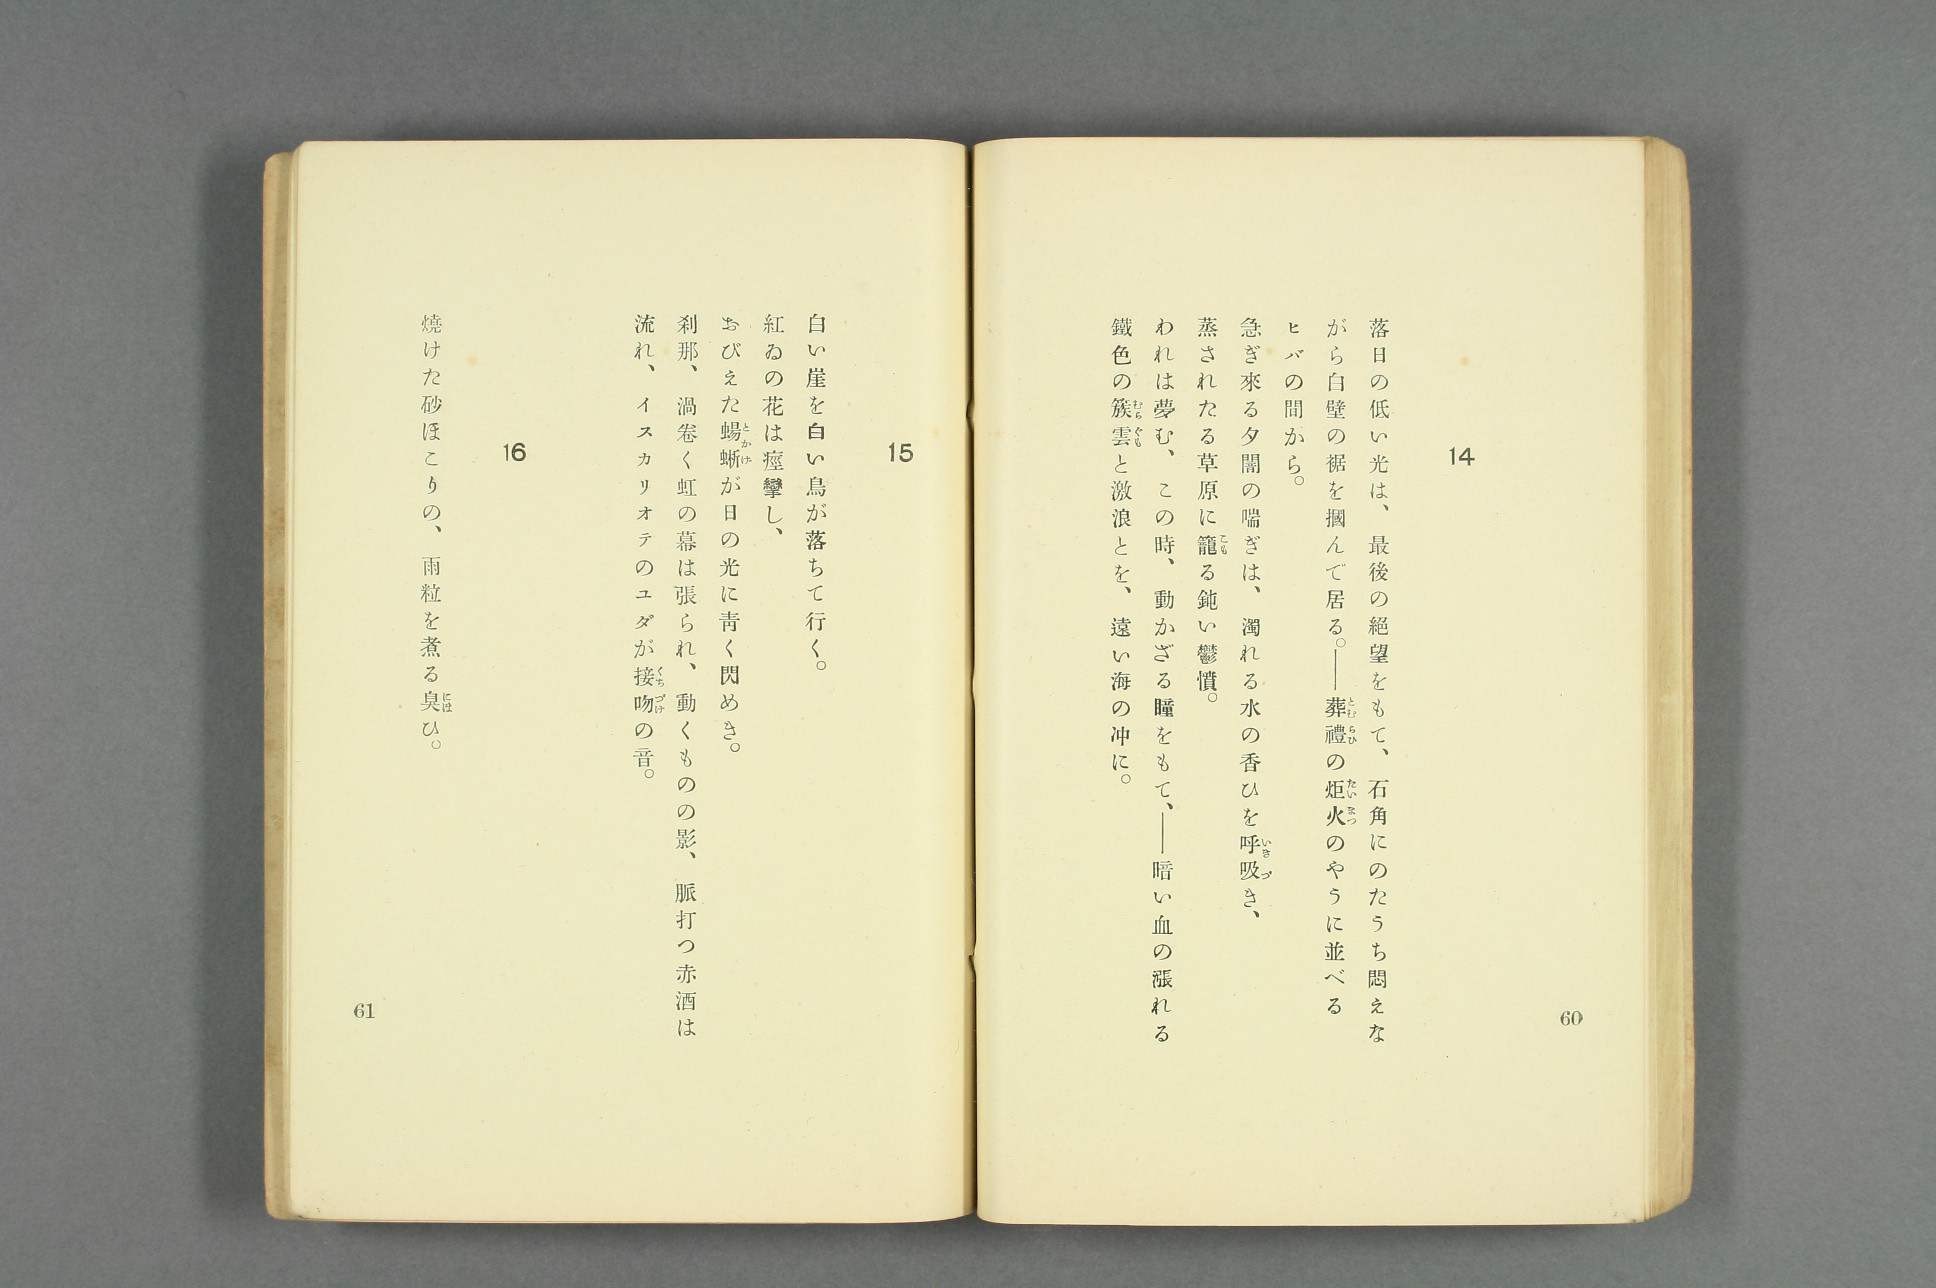 60
14
落日の低い光は、最後の絕望をもて、石角にのたうち悶えな
がら白壁の裾を摑んで居る。――葬禮の炬火のやうに並べる
ヒバの間から。
急ぎ來る夕闇の喘ぎは、濁れる水の香ひを呼吸き、
蒸されたる草原に籠る鈍い鬱憤。
われは夢む、この時、動かざる瞳をもて、――暗い血の漲れる
鐵色の簇雲と激浪とを、遠い海の冲に。
15
白い崖を白い鳥が落ちて行く。
紅ゐの花は痙攣し、
おびえた蜴蜥が日の光に靑く閃めき。
刹那、渦卷く虹の幕は張られ、動くものの影、脈打つ赤酒は
流れ、イスカリオテのユダが接吻の音。
16
燒けた砂ほこりの、雨粒を煮る臭ひ。
61